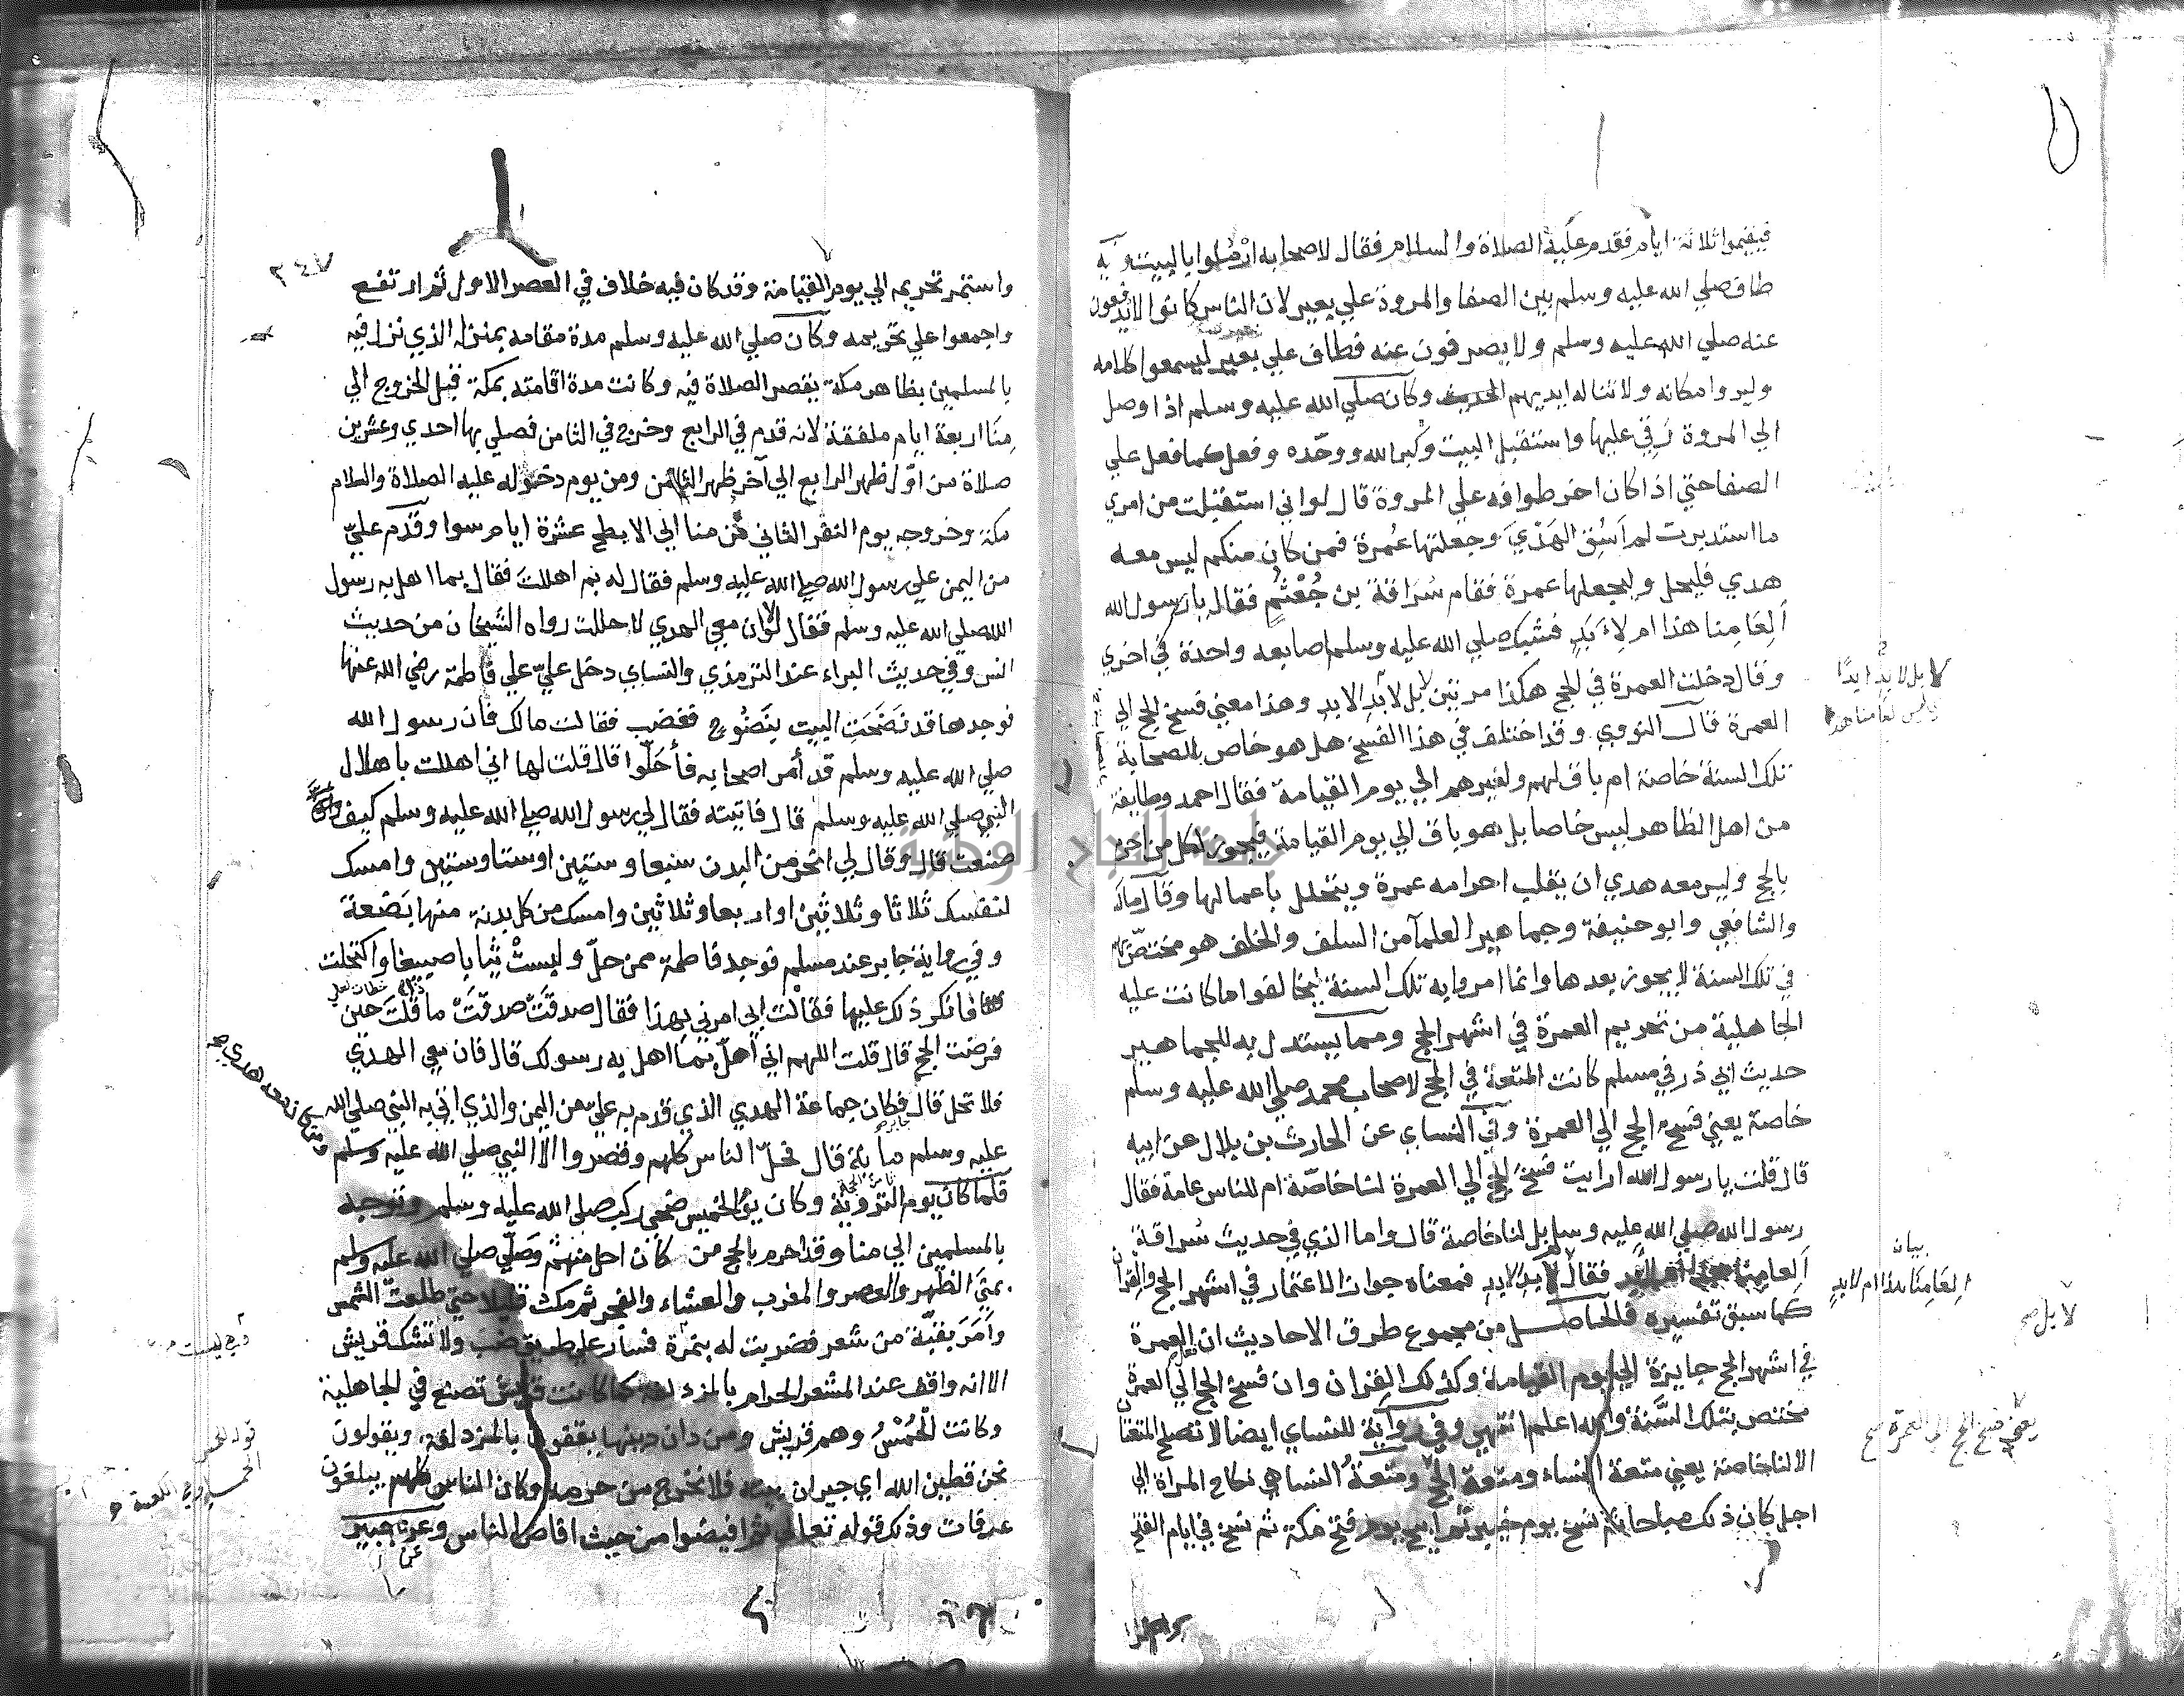 فيقيموا ثلاثة ايام فقدم عليه الصلاة والسلام فقال لاصحابه ارملوا بالبيت وفيه
طاف صلي الله عليه وسلم بين الصفا والمروة علي بعير لان الناس كانوا لا يدفعون
عنه صلي الله عليه وسلم ولا يصرفون عنه فطاف علي بعير ليسمعوا كلامه
وليروا مكانه ولا تناله ايديهم الحديث وكان صلي الله عليه وسلم اذا وصل
الي المروة رَقِي عليها واستقبل البيت وكبر الله ووحّده وفعل كما فعل علي
الصفا حتي اذا كان اخر طوافه علي المروة قال لو اني استقبلت من امري
ما استدبرت لم اَسُقِ الهَدْيَ وجعلتها عُمرة فمن كان منكم ليس معه
هدي فليحل وليجعلها عمرة فقام سُرَاقة بن جُعْثُمٍ فقال يا رسول الله
اَلِعَامِنا هذا ام لِاَبَدٍ فشبك صلي الله عليه وسلم اصابعه واحدة في اخري
وقال دخلت العمرة في الحج هكذا مرتين لا بل لابد الابد وهذا معني فسخ الحج الي
العمرة قال النووي وقد اختلف في هذا الفسخ هل هو خاص بالصحابة
تلك السنة خاصة ام باق لهم ولغيرهم الي يوم القيامة فقال احمد وطايفة
من اهل الظاهر ليس خاصا بل هو باق الي يوم القيامة فيجوز لكل من احرم
بالحج وليس معه هدي ان يقلب احرامه عمرة ويتحلل باعمالها وقال مالك
والشافعي وابو حنيفة وجماهير العلمآ من السلف والخلف هو مختصّ بهم
في تلك السنة لا يجوز بعدها وانما امروا به تلك السنة ليخالفوا ما كانت عليه
الجاهلية من تحريم العمرة في اشهر الحج ومما يستدل به للجماهير
حديث ابي ذر في مسلم كانت المتعة في الحج لاصحاب محمد صلي الله عليه وسلم
خاصة يعني فسخ الحج الي العمرة وفي النساي عن الحارث بن بلال عن ابيه
قال قلت يا رسول الله ارايت فسخ الحج الي العمرة لنا خاصّة ام للناس عامة فقال
رسول الله صلي الله عليه وسلم بل لنا خاصة قال واما الذي في حديث سُراقة
اَلعامِنا فقال لا بل لابد الابد فمعناه جواز الاعتمار في اشهر الحج والقِران
كما سبق تفسيره فالحاصل من مجموع طرق الاحاديث ان العمرة
في اشهر الحج جايزة الي يوم القيامة وكذلك القران وان فسخ الحج الي العمرة
مختص بتلك السّنة والله اعلم انتهي وفي رواية للنساي ايضا لا تصلح المتعتان
الا لنا خاصة يعني متعة النساء ومتعة الحج ومتعة النسا هي نكاح المراة الي
اجل كان ذلك مباحا ثم نسخ يوم خيبر ثم ابيح يوم فتح مكة ثم نسخ في ايام الفتح
لا بل لابد ابدًا
بيان
اَلِعَامِنَا هذا ام لابدٍ
لا بل صح
يعني فسخ الحج الي العمرة صح
٢٤٧
واستمر تحريمه الي يوم القيامة وقد كان فيه خلاف في العصر الاول ثم ارتفع
واجمعوا علي تحريمه وكان صلي الله عليه وسلم مدة مقامه بمنزله الذي نزل فيه
بالمسلمين بظاهر مكة يقصر الصلاة فيه وكانت مدة اقامته بمكة قبل الخروج الي
مِنَا اربعة ايام ملفقة لانه قدم في الرابع وخرج في الثامن فصلي بها احدي وعشرين
صلاة من اوّل ظهر الرابع الي آخر ظهر الثامن ومن يوم دخوله عليه الصلاة والسلام
مكة وخروجه يوم النفر الثاني من منا الي الابطح عشرة ايام سوا وقَدِم عليّ
من اليمن علي رسول الله صلي الله عليه وسلم فقال له بم اهللتَ فقال بما اهل به رسول
الله صلي الله عليه وسلم فقال لولا ان معي الهدي لاحللت رواه الشيخان من حديث
انس وفي حديث البراء عند الترمذي والنساي دخل عليّ علي فاطمة رضي الله عنها
فوجدها قد نَضَحَتِ البيت بنَضُوحٍ فغضب فقالت مالك فان رسول الله
صلي الله عليه وسلم قد أمر اصحابه فأحَلّوا قال قلت لها اني اهللت باهلال
النبي صلي الله عليه وسلم قال فاتيته فقال لي رسول الله صلي الله عليه وسلم كيف
صنعت قال وقال لي انحر من البدن سبعا وستين او ستا وستين وامسك
لنفسك ثلاثا وثلاثين او اربعا وثلاثين وامسك من كل بدنة منها بَضْعة
وفي رواية جابر عند مسلم فوجد فاطمة ممن حلّ ولبستْ ثيابا صبيغا واكتحلت
فانكر ذلك عليها فقالت ابي امرني بهذا فقال صدقَتْ صدقَتْ ما قلتَ حين
فرضت الحج قال قلت اللهم اني اُهِلّ بما اهل به رسولك قال فان معي الهدْي
فلا تحل قال فكان جماعة الهدي الذي قدم به عليّ من اليمن والذي اتي به النبي صلي الله
عليه وسلم مايَة قال فحلّ الناس كلهم وقصروا الا النبي صلي الله عليه وسلم
فلما كان يوم التروية وكان يوم الخميس ضحي ركب صلي الله عليه وسلم وتوجه
بالمسلمين الي منا وقد احرم بالحج من كان احل منهم وصَلّي صلي الله عليه وسلم
بمِنَي الظهر والعصر والمغرب والعشاء والفجر ثم مكث قليلا حتي طلعت الشمس
وأمَرَ بقبّة من شعر فضربت له بنمرة فسار علي طريق ضب ولا تشك قريش
الا انه واقف عند المشعر الحرام بالمزدلفة كما كانت قريش تصنع في الجاهلية
وكانت الْحُمْسُ وهم قريش ومن دان دينها يقفون بالمزدلفة ويقولون
نحن قطين الله اي جيران بيته فلا نخرج من حرمه وكان الناس كلهم يبلغون
عرفات وذلك قوله تعالي ثم افيضوا من حيث افاض الناس وعن جبير
ومن كان معه هدي صح